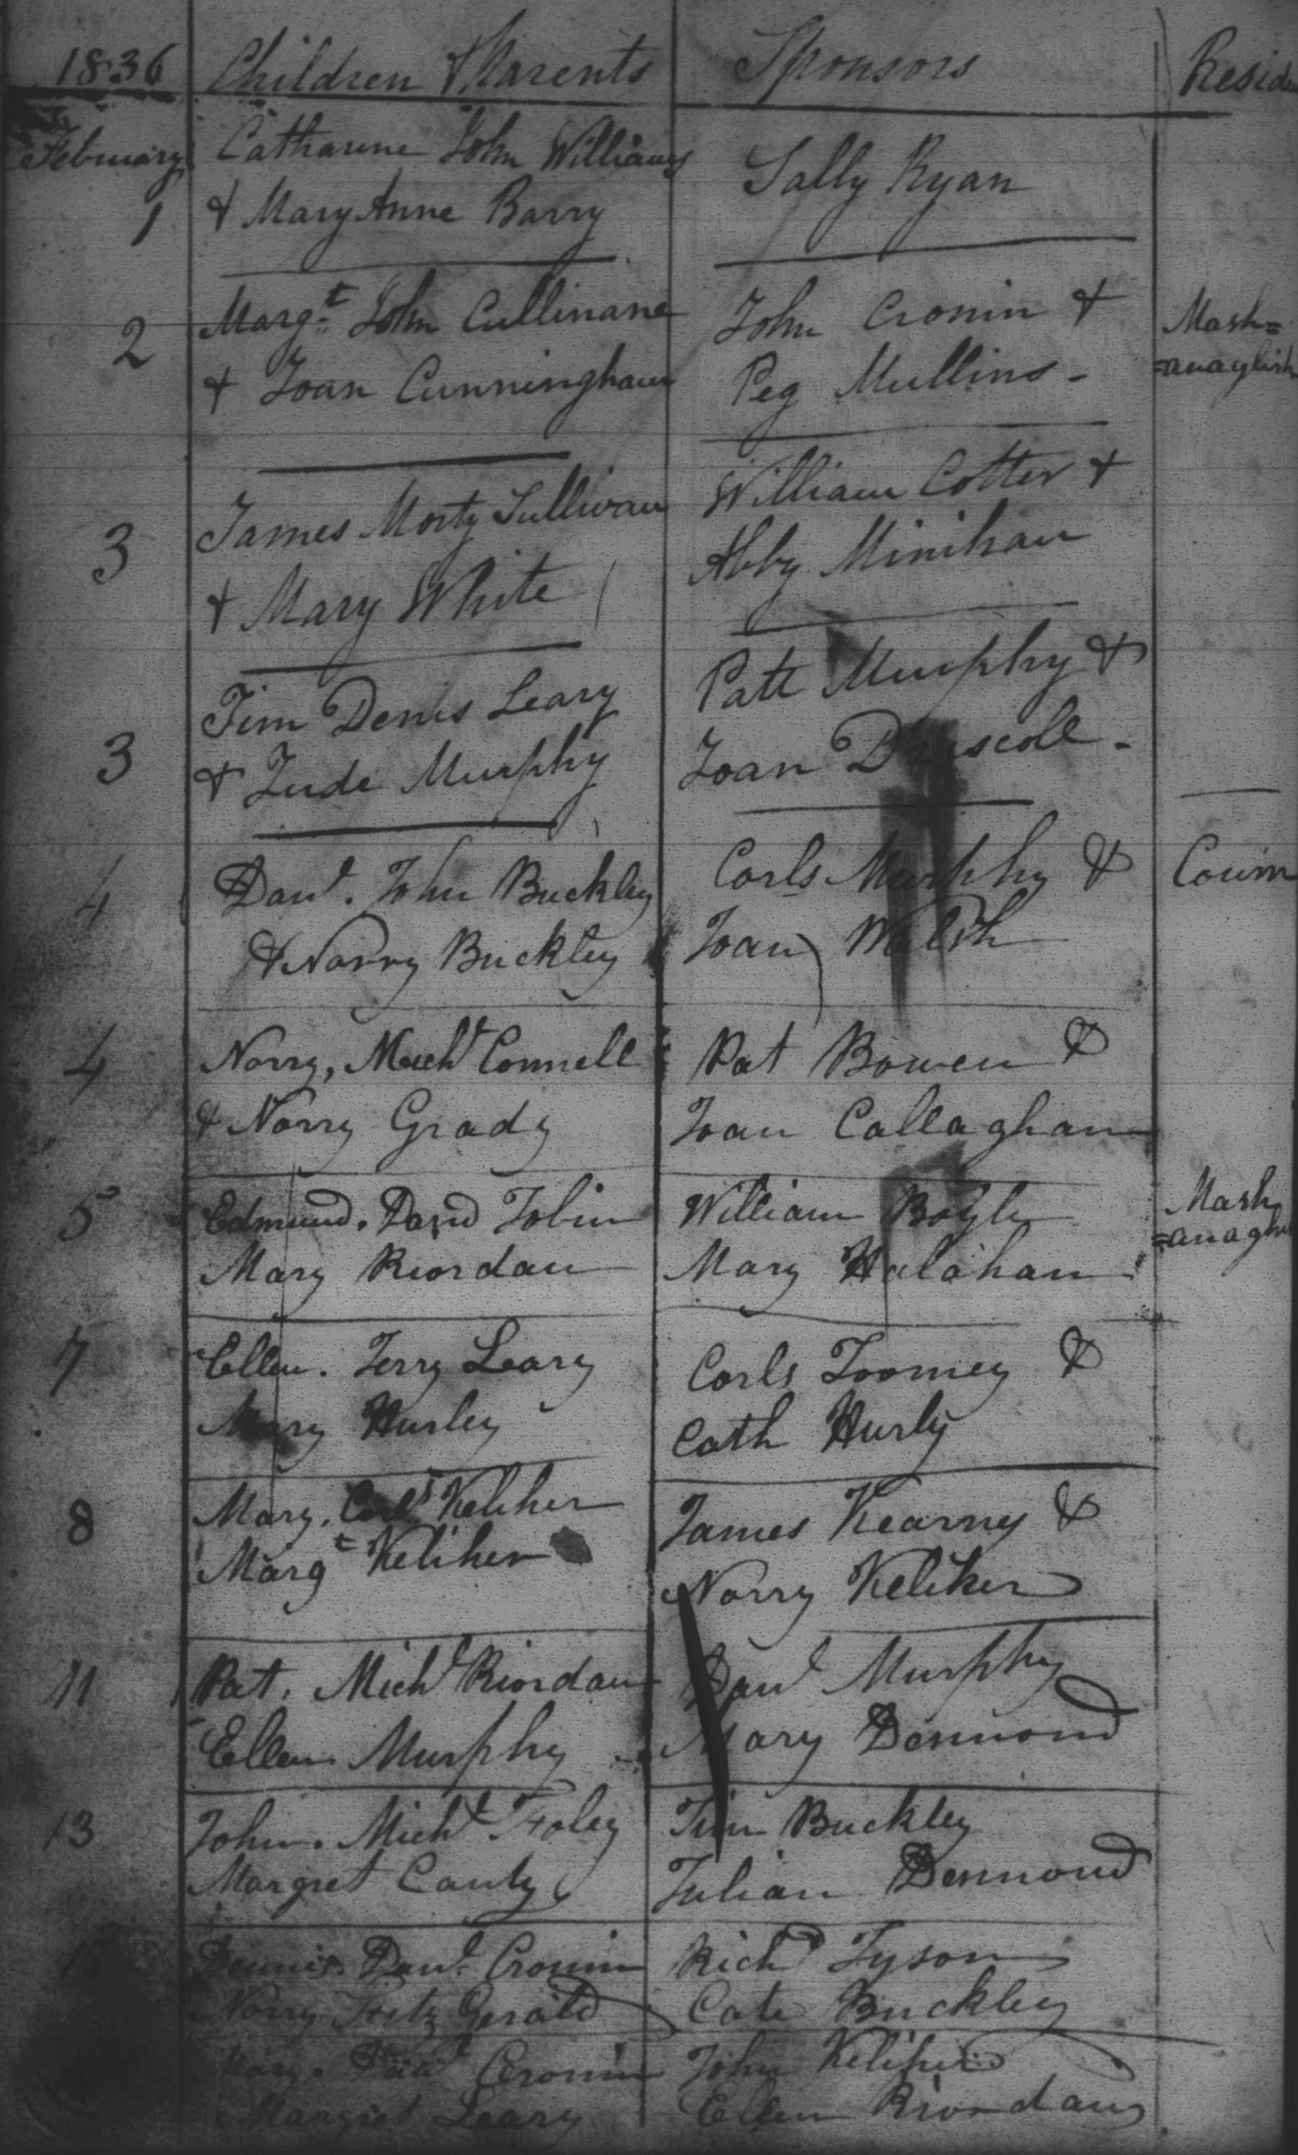 1836 Children & Parents Sponsors Resid
February Catharine John Williams Sally Ryan
1 & Mary Anne Barry
2 Marg.t John Cullinane John Cronin & Mash=
& Joan Cunningham Peg Mullins - =anaglish
3 James Morty Sullivan William Cotter &
& Mary White Abby Minihan
3 Tim Denis Leary Patt Murphy &
& Jude Murphy Joan Driscoll -
4 Davd. John Buckley Corls Murphy & Coum
& Norry Buckley Joan Welsh
4 Norry, Michl Connell Pat Bowen &
& Norry Grady Joan Callaghan
5 Edmund. David Tobin William Boyle Mash
Mary Riordan Mary Halahan =anagh
7 Ellen. Jerry Leary Corls Toomey &
Mary Hurley Cath Hurly
8 Mary. Corls Keliher James Kearney &
Margt Keliher Norry Keliher
11 Pat. Michl Riordan Davd Murphy
Ellen Murphy Mary Desmond
13 John. Michl Foley Tim Buckley
Margret Canty Julian Desmond
Dennis. Davd. Cronin Richd Tyson
Norry Fitz Gerald Cate Buckley
Davd Cronin John Keliher
Margret Leary Ellen Riordan